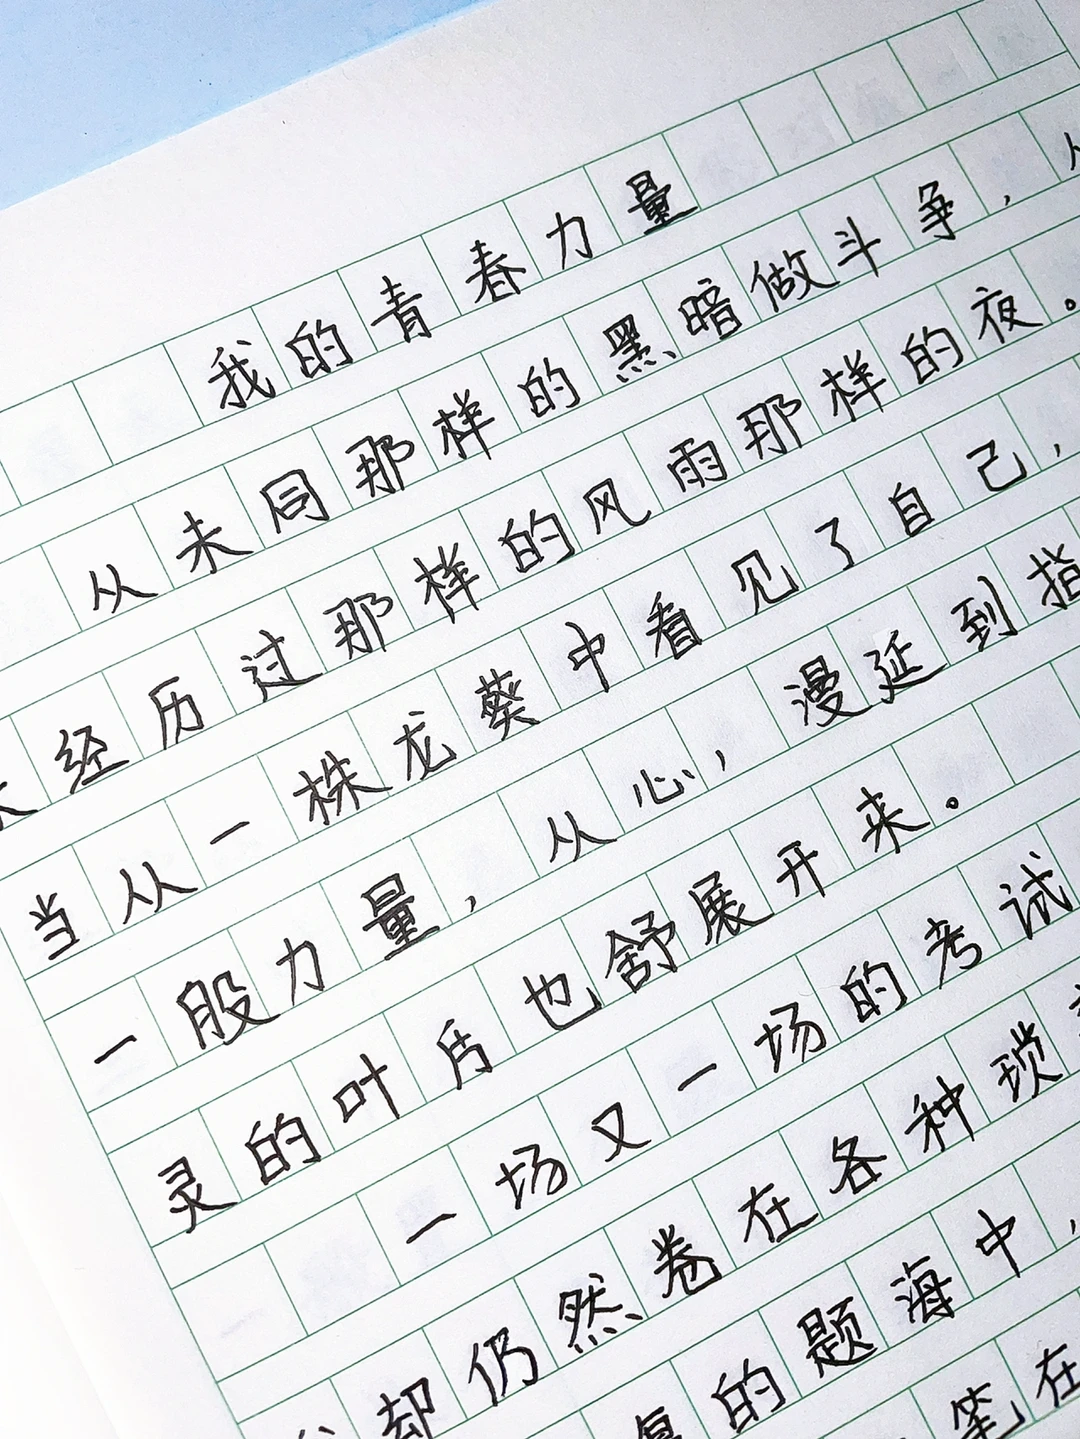 我的青春力量
从未同那样的黑暗做斗争，从
未经历过那样的风雨那样的夜。
当从一株龙葵中看见了自己，
一股力量，从心，漫延到指
灵的叶片也舒展开来。
一场又一场的考试
我却仍然卷在各种琐
的题海中，
笔在